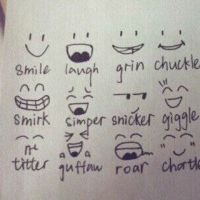 smile laugh grin chuckle
smirk simper snicker giggle
titter guffaw roar chortle